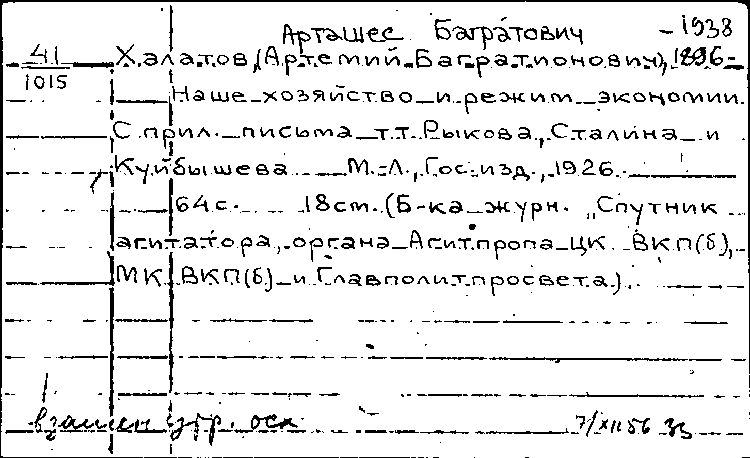 Арташес Багратович -1938
41 Халатов, (Артемий Багратионович), 1896-
1015
Наше хозяйство и режим экономии.
С прил. письма т.т. Рыкова, Сталина и
Куйбышева М.-Л., Гос. изд., 1926.
64 с. 18 cm. (Б-ка журн. „Спутник
агитатора, органа Агитпропа ЦК ВКП(б),
МК ВКП(б) и Главполитпросвета).
взамен утр. 7/XII 56